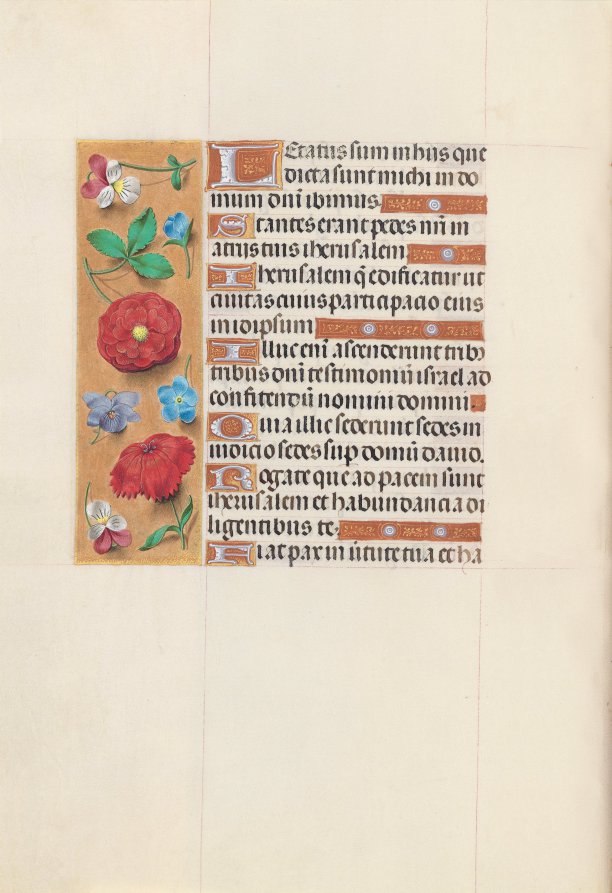 Letatus sum in hiis que
dicta sunt michi in do
mum dnī ibimus.
Stantes erant pedes nr̄i in
atriis tuis iherusalem.
Iherusalem q̄ edificatur ut
civitas cuius participacio eius
in idipsum
Illuc enī ascenderunt trib9
tribus dnī testimoniū israel ad
confitendū nomini domini.
Quia illic sederunt sedes in
iudicio sedes sup domū david.
Rogate que ad pacem sunt
iherusalem et habundancia di
ligentibus te.
Fiat pax in v̄tute tua et ha